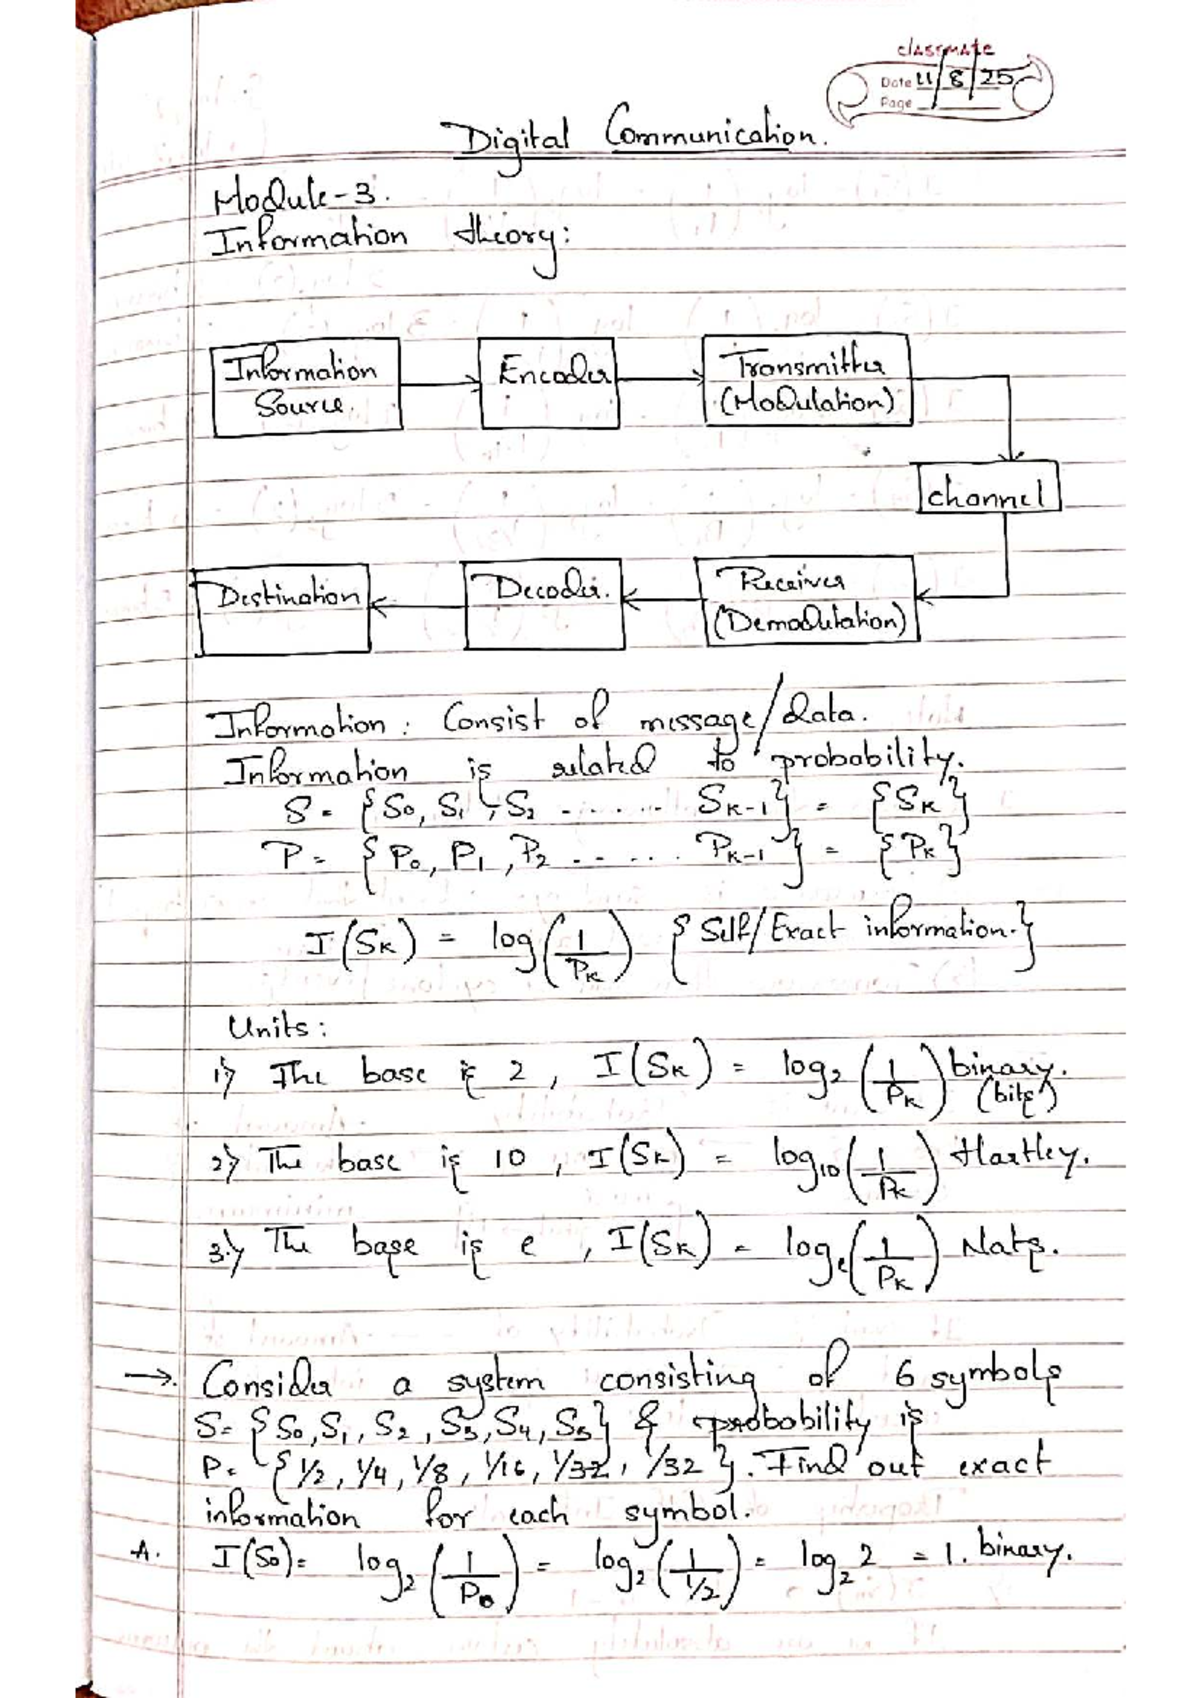 classmate
Date 11/8/25
Page
Digital Communication.
Module-3.
Information theory:
Information Source
Encoder
Transmitter (Modulation)
channel
Receiver (Demodulation)
Decoder.
Destination
Information: Consist of message/data.
Information is related to probability.
S = {S₀, S₁, S₂ ...... Sₖ₋₁} = {Sₖ}
P = {P₀, P₁, P₂ ...... Pₖ₋₁} = {Pₖ}
I(Sₖ) = log(1/Pₖ) {Self/Exact information.}
Units:
1) The base is 2, I(Sₖ) = log₂(1/Pₖ) binary. (bits)
2) The base is 10, I(Sₖ) = log₁₀(1/Pₖ) Hartley.
3) The base is e, I(Sₖ) = logₑ(1/Pₖ) Nats.
→. Consider a system consisting of 6 symbols
S= {S₀, S₁, S₂, S₃, S₄, S₅} & probobility is
P= {1/2, 1/4, 1/8, 1/16, 1/32, 1/32}. Find out exact
information for each symbol.
A. I(S₀)= log₂(1/P₀) = log₂(1/1/2) = log₂2 = 1. binary.